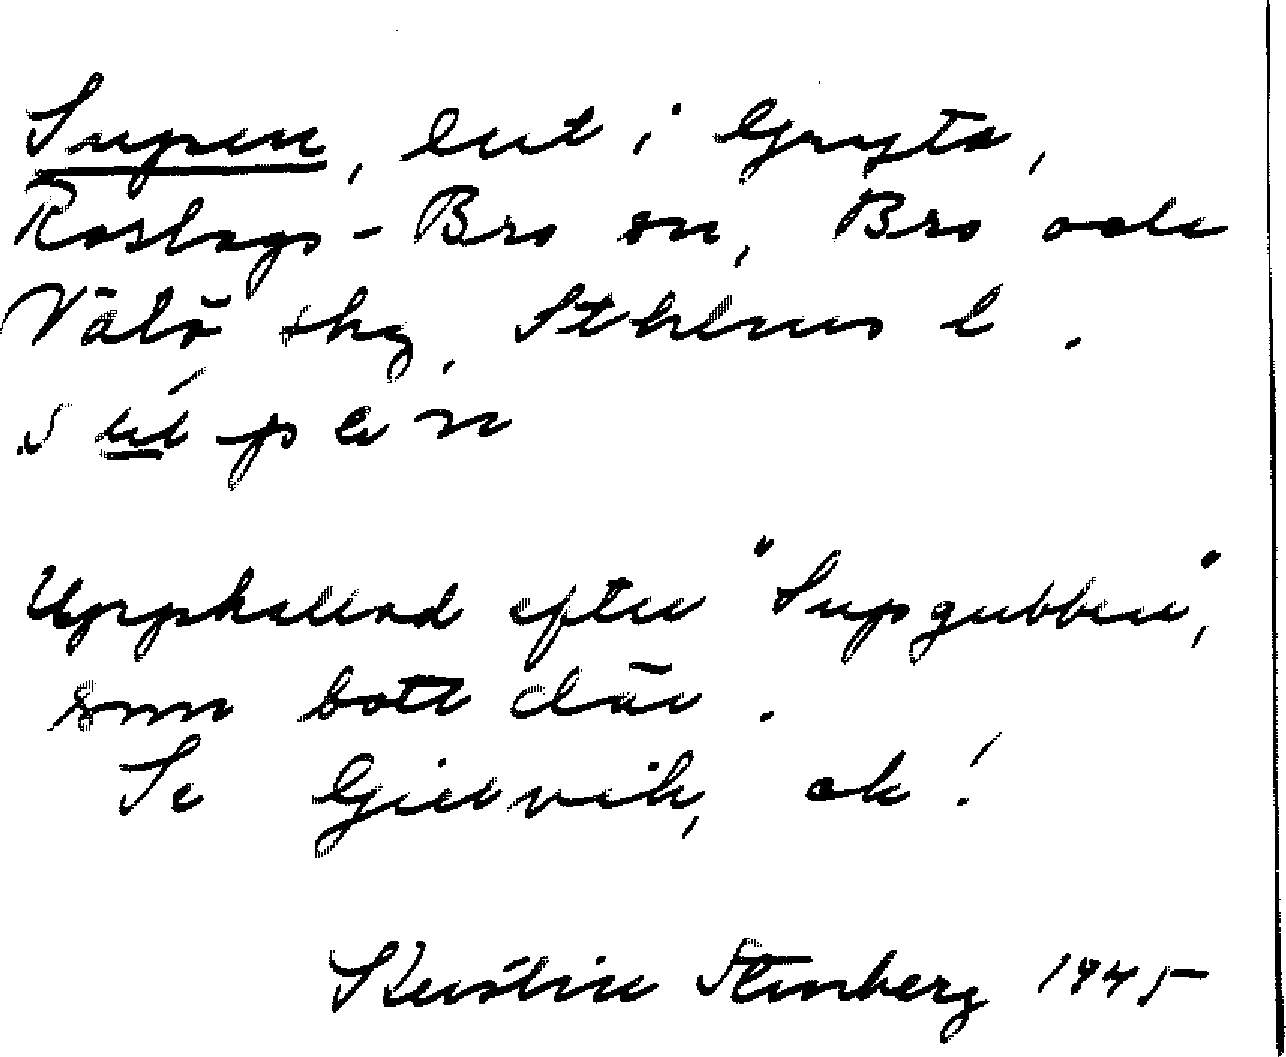 Supen, lut i Gryta,
Roslags-Bro sn, Bro och
Välö skg, Sthlms l.
Uppkallad efter "Supgubben",
som bott där.
Se Gillvik, ak!
Kerstin Stenberg 1945